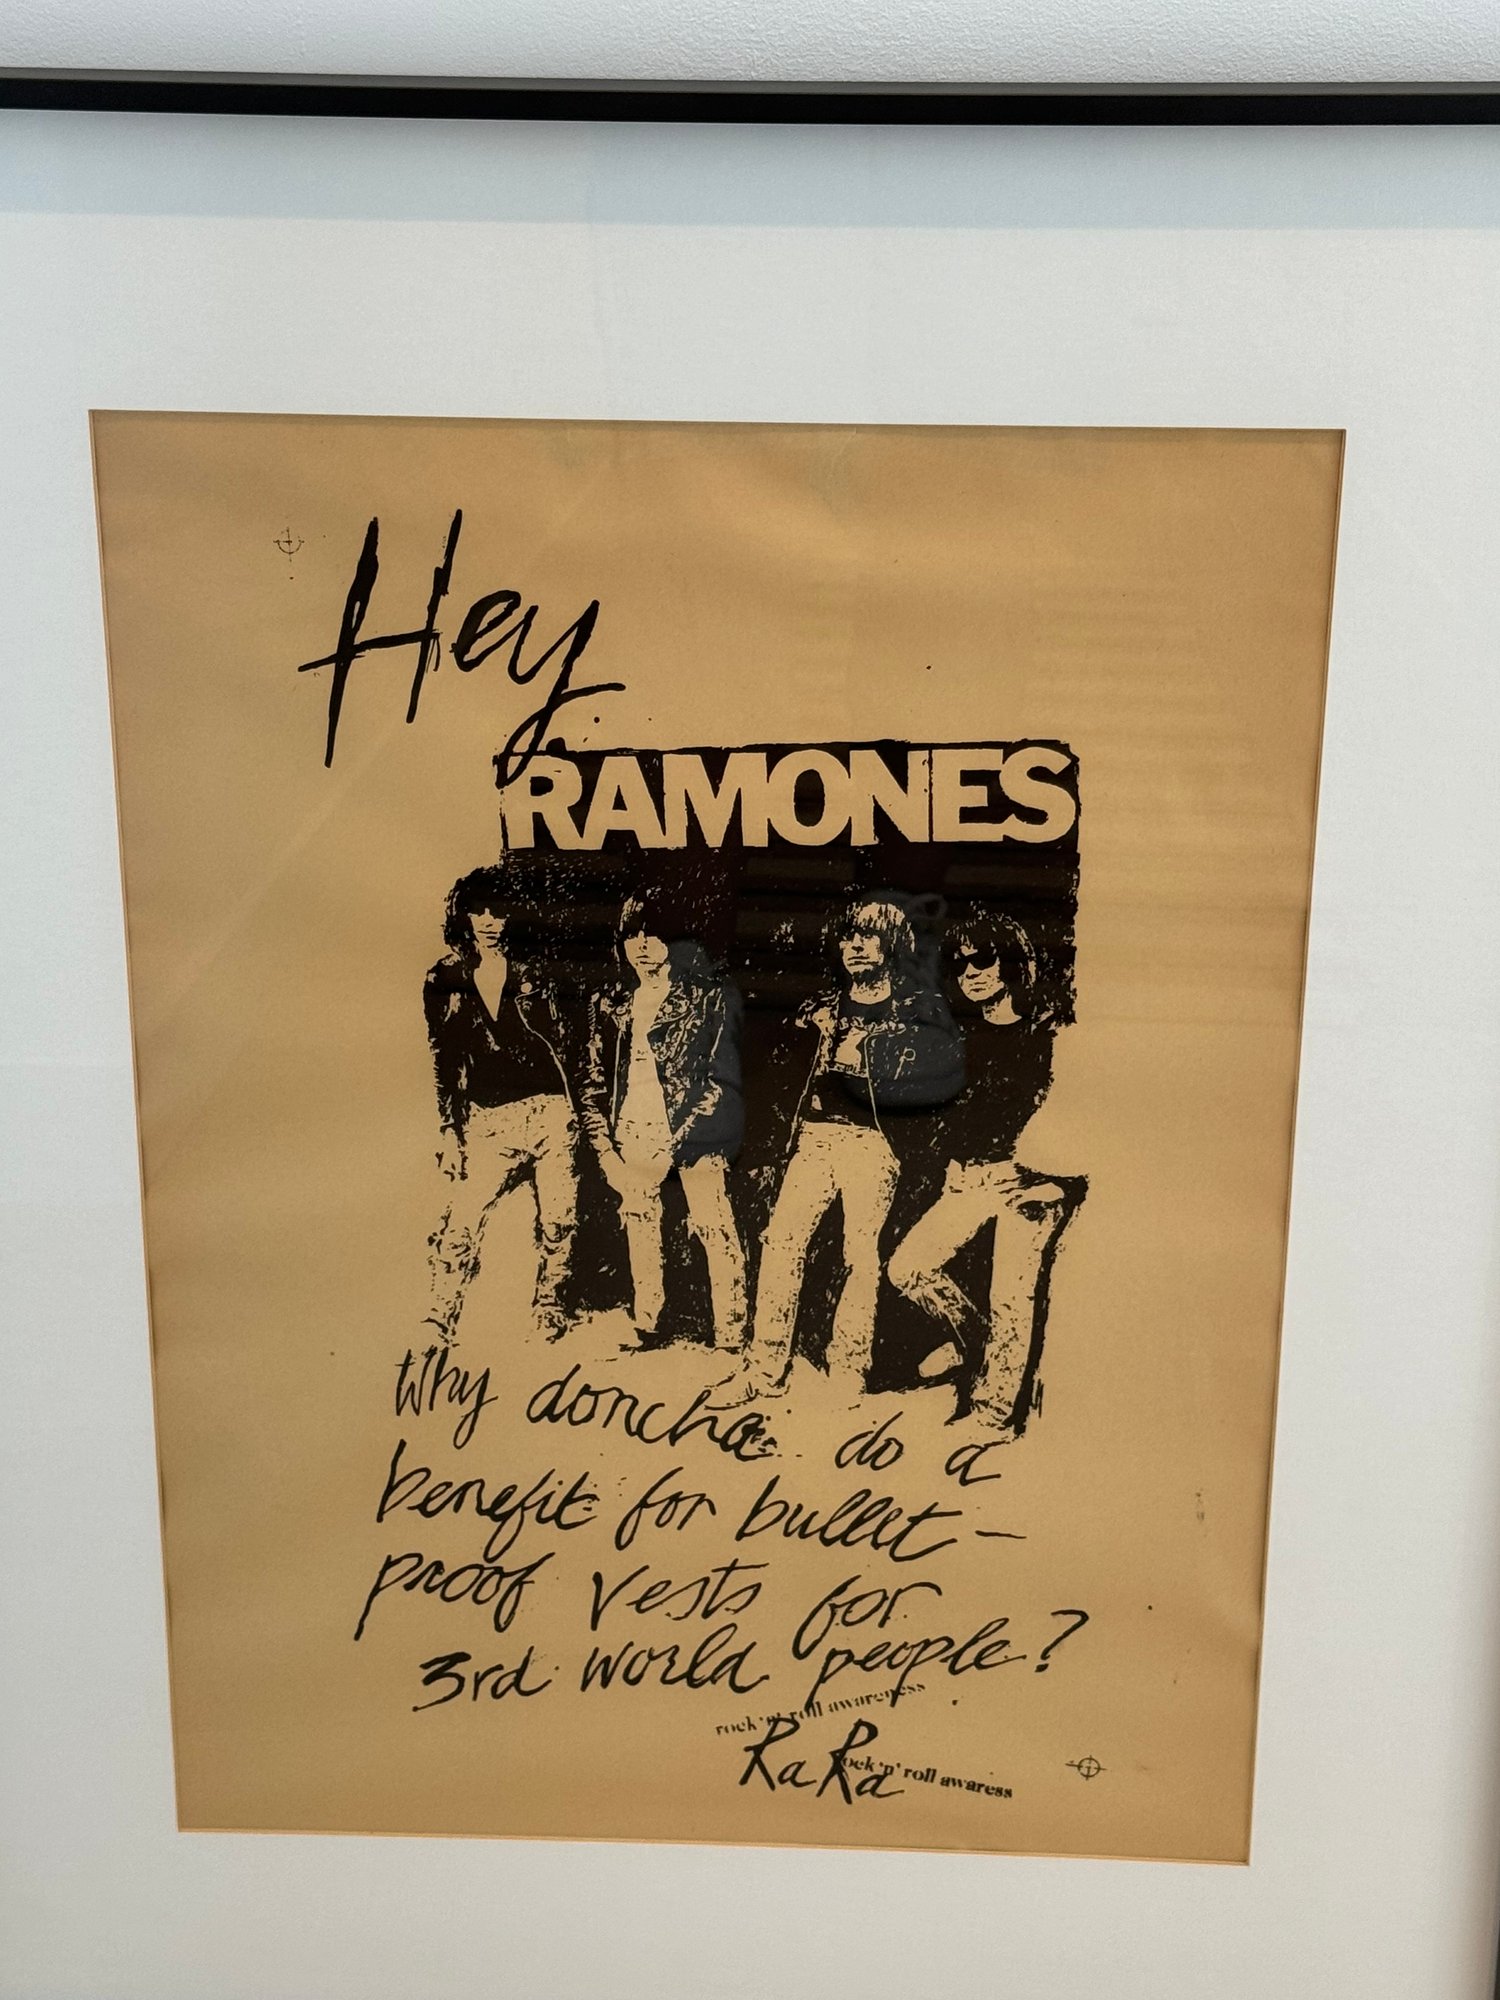 Hey
RAMONES
Why doncha do a
benefit for bullet-
proof vests for
3rd world people?
rock 'n' roll awareness
Ra Ra
rock 'n' roll awaress